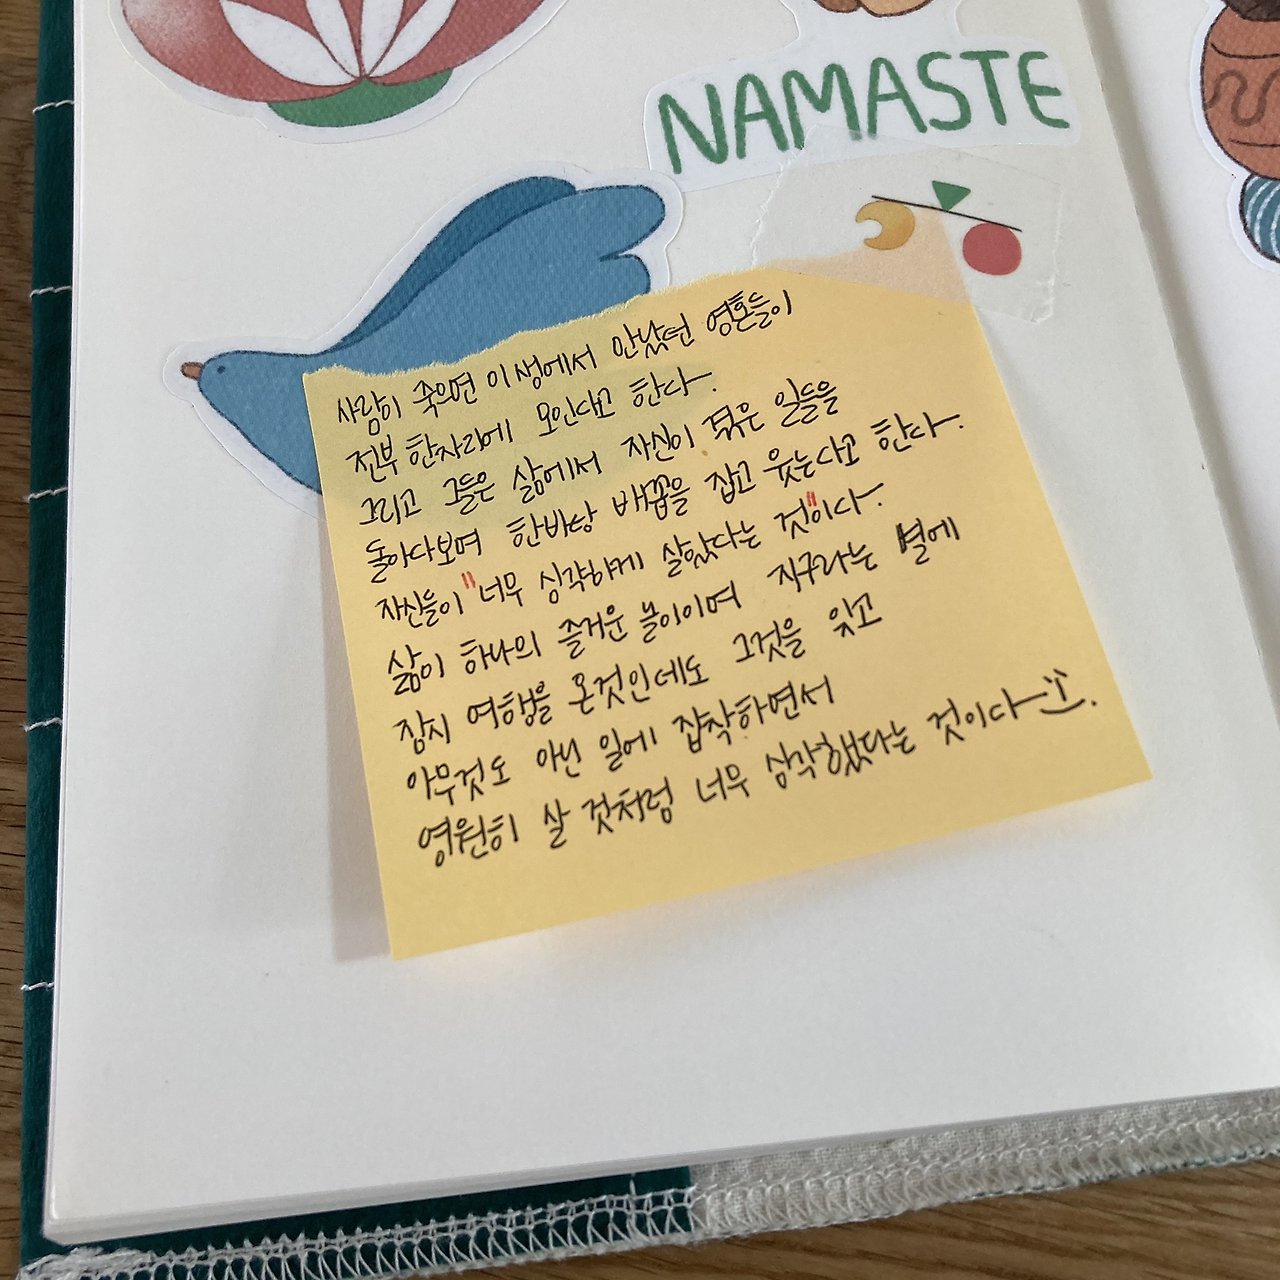 NAMASTE
사람이 죽으면 이 생에서 만났던 영혼들이
전부 한자리에 모인다고 한다.
그리고 그들은 삶에서 자신이 겪은 일들을
돌아다보며 한바탕 배꼽을 잡고 웃는다고 한다.
자신들이 "너무 심각하게 살았다는 것"이다.
삶이 하나의 즐거운 놀이이며 지구라는 별에
잠시 여행을 온것인데도 그것을 잊고
아무것도 아닌 일에 집착하면서
영원히 살 것처럼 너무 심각했다는 것이다.